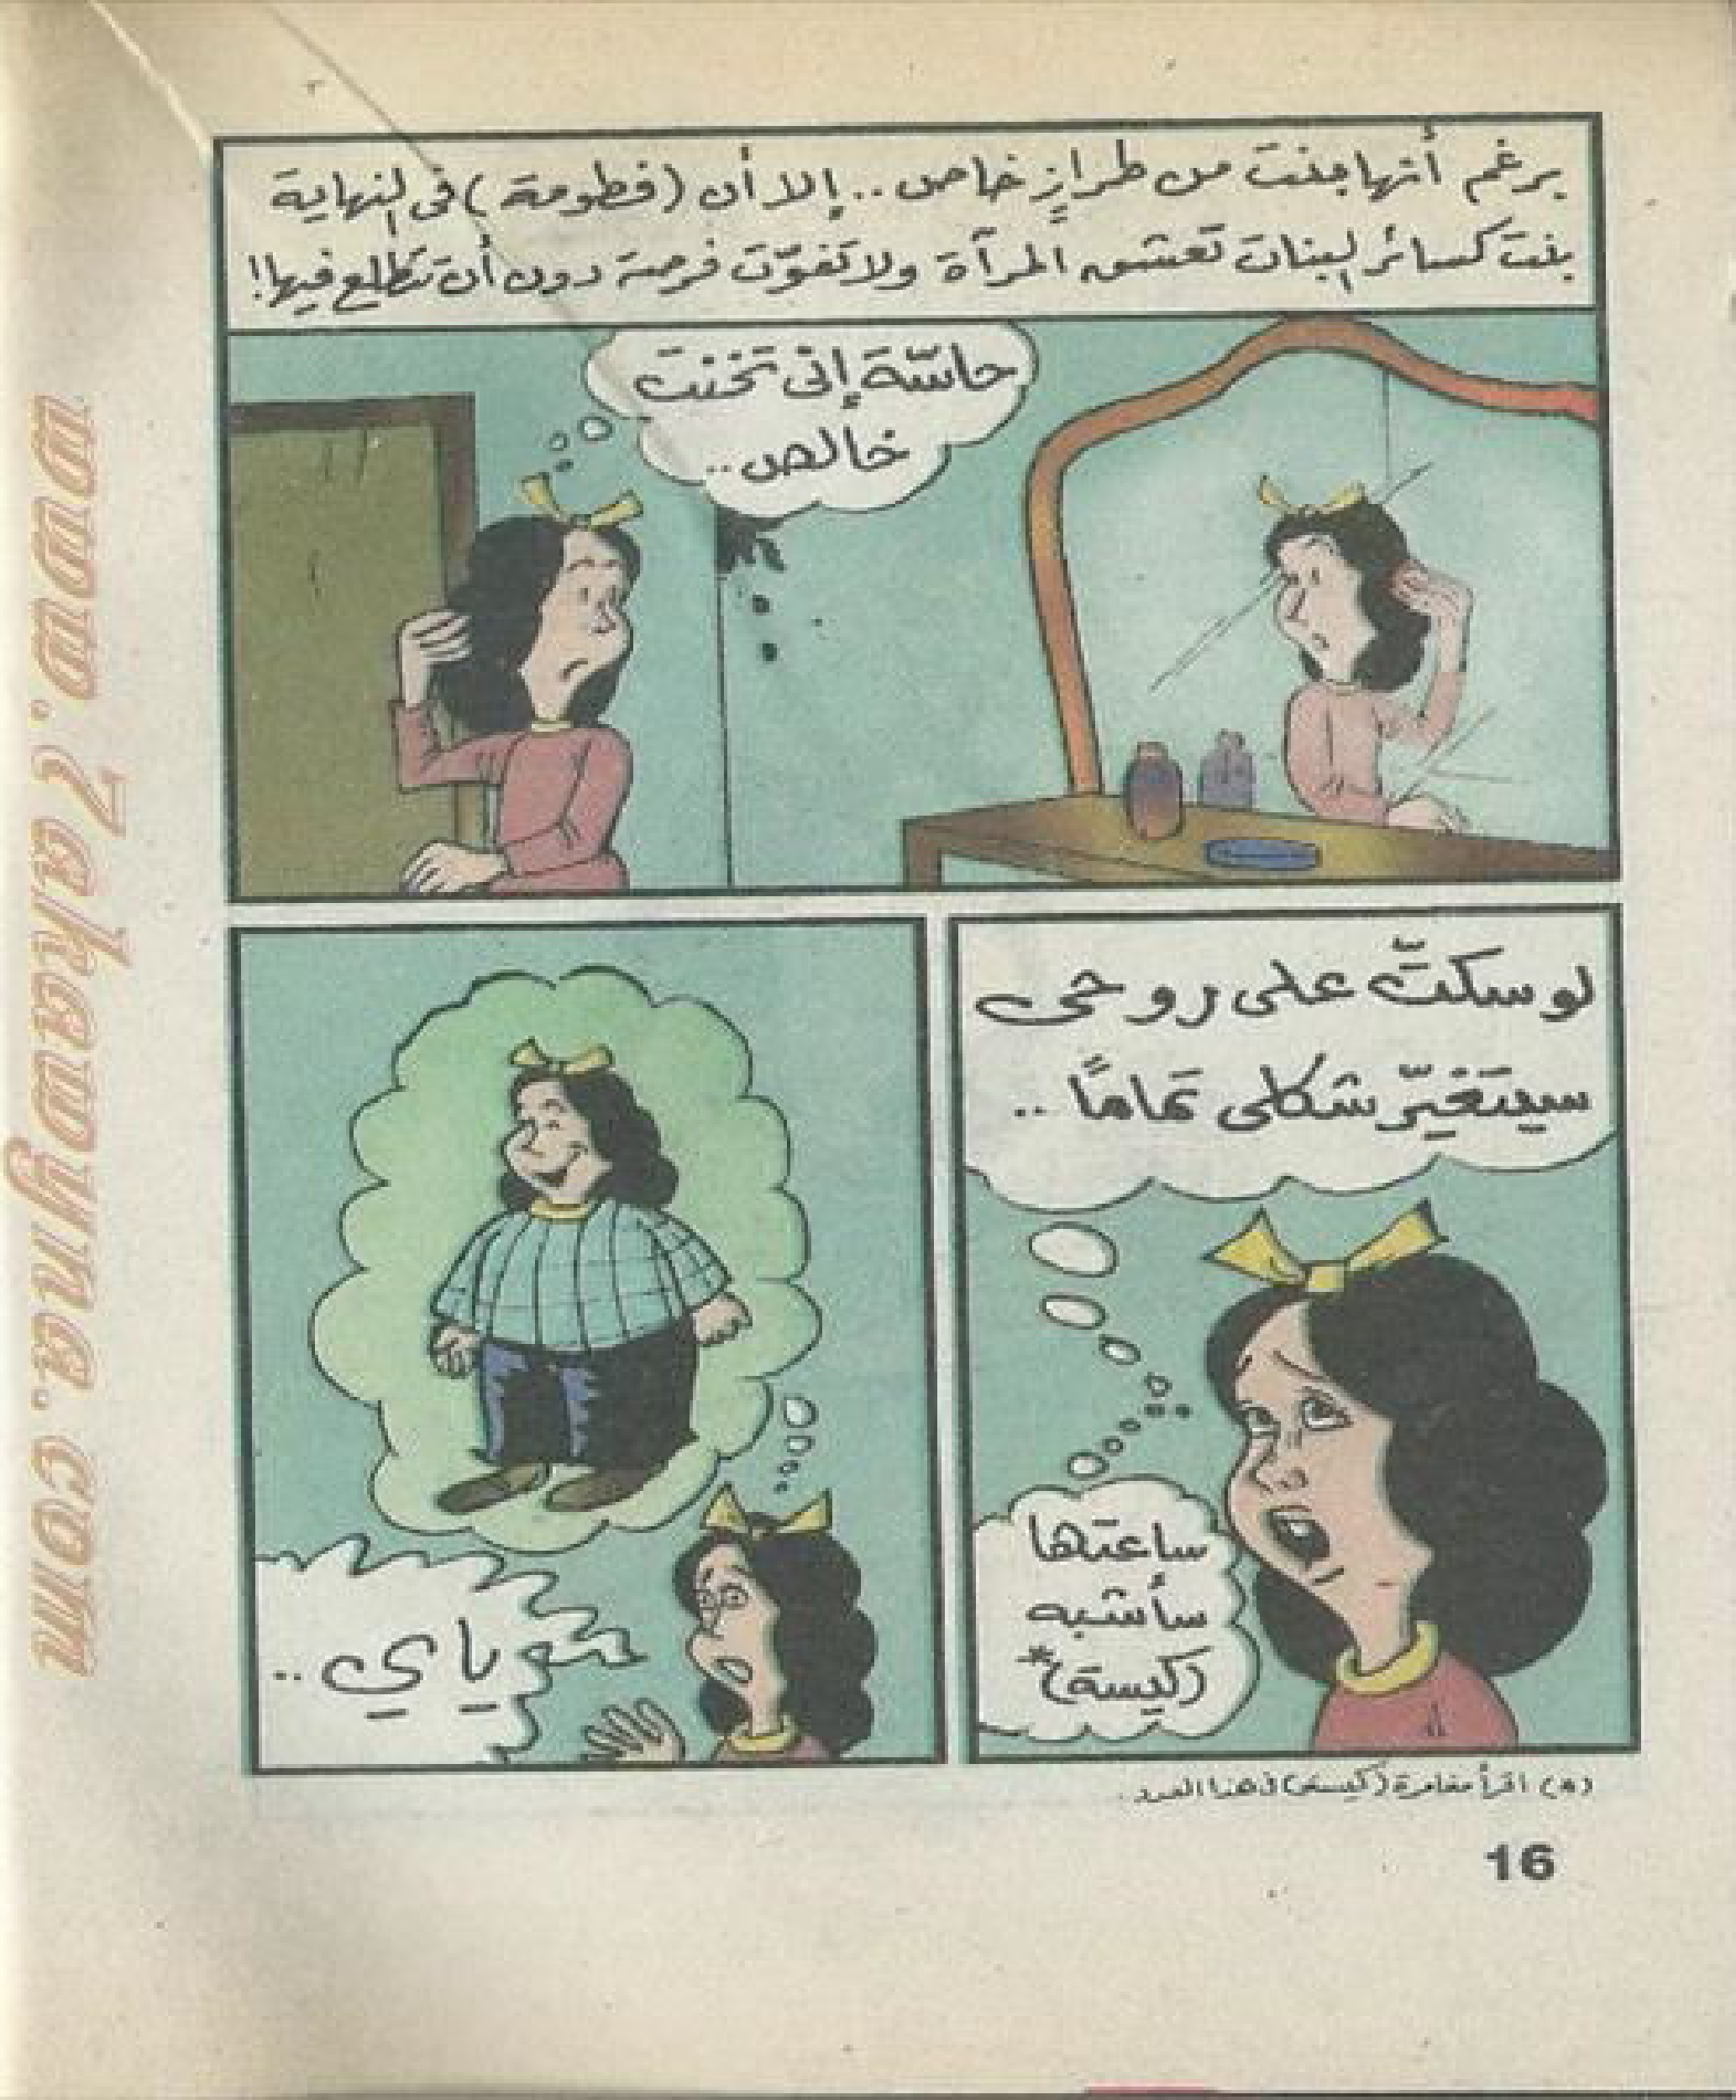 برغم أنها بنت من طرازٍ خاص .. إلا أن (فطومة) فى النهاية
بنت كسائر البنات تعشق المرآة ولا تفوّت فرصة دون أن تتطلع فيها!
حاسّة إنى تخنت
خالص ..
لو سكتّ على روحى
سيتغيّر شكلى تمامًا ..
ساعتها
سأشبه
(كيسة)*
ياي ..
(*) اقرأ مغامرة (كيسة) فى هذا العدد .
16
www.7akawyuna.com